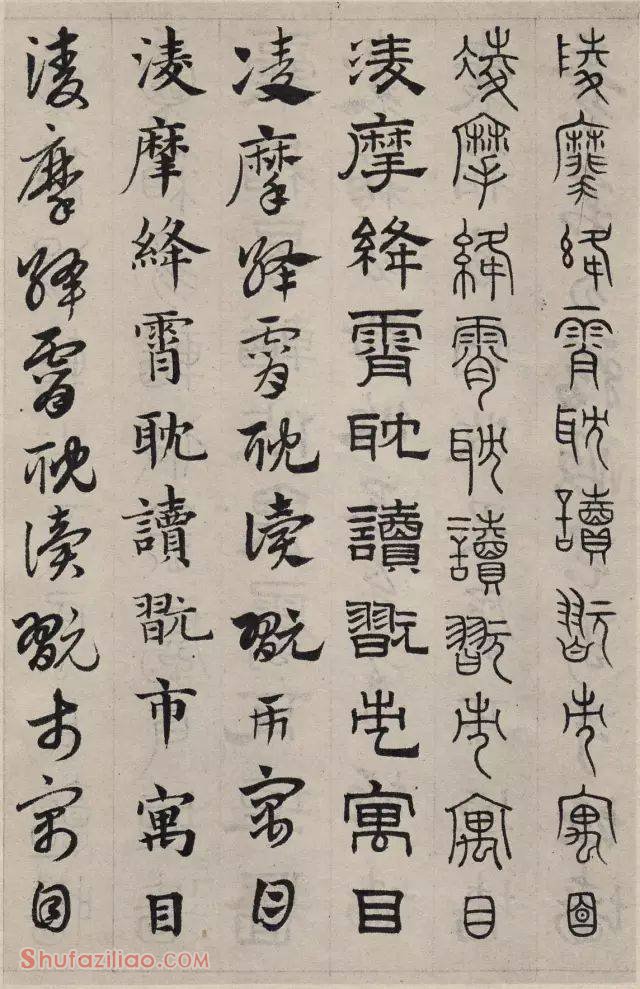 陵摩絳霄耽讀翫市寓目
凌摩絳霄耽讀翫市寓目
淩摩絳霄耽讀翫市寓目
凌摩絳霄耽讀翫市寓目
淩摩絳霄耽讀翫市寓目
淩摩絳霄耽讀翫市寓目
Shufaziliao.com